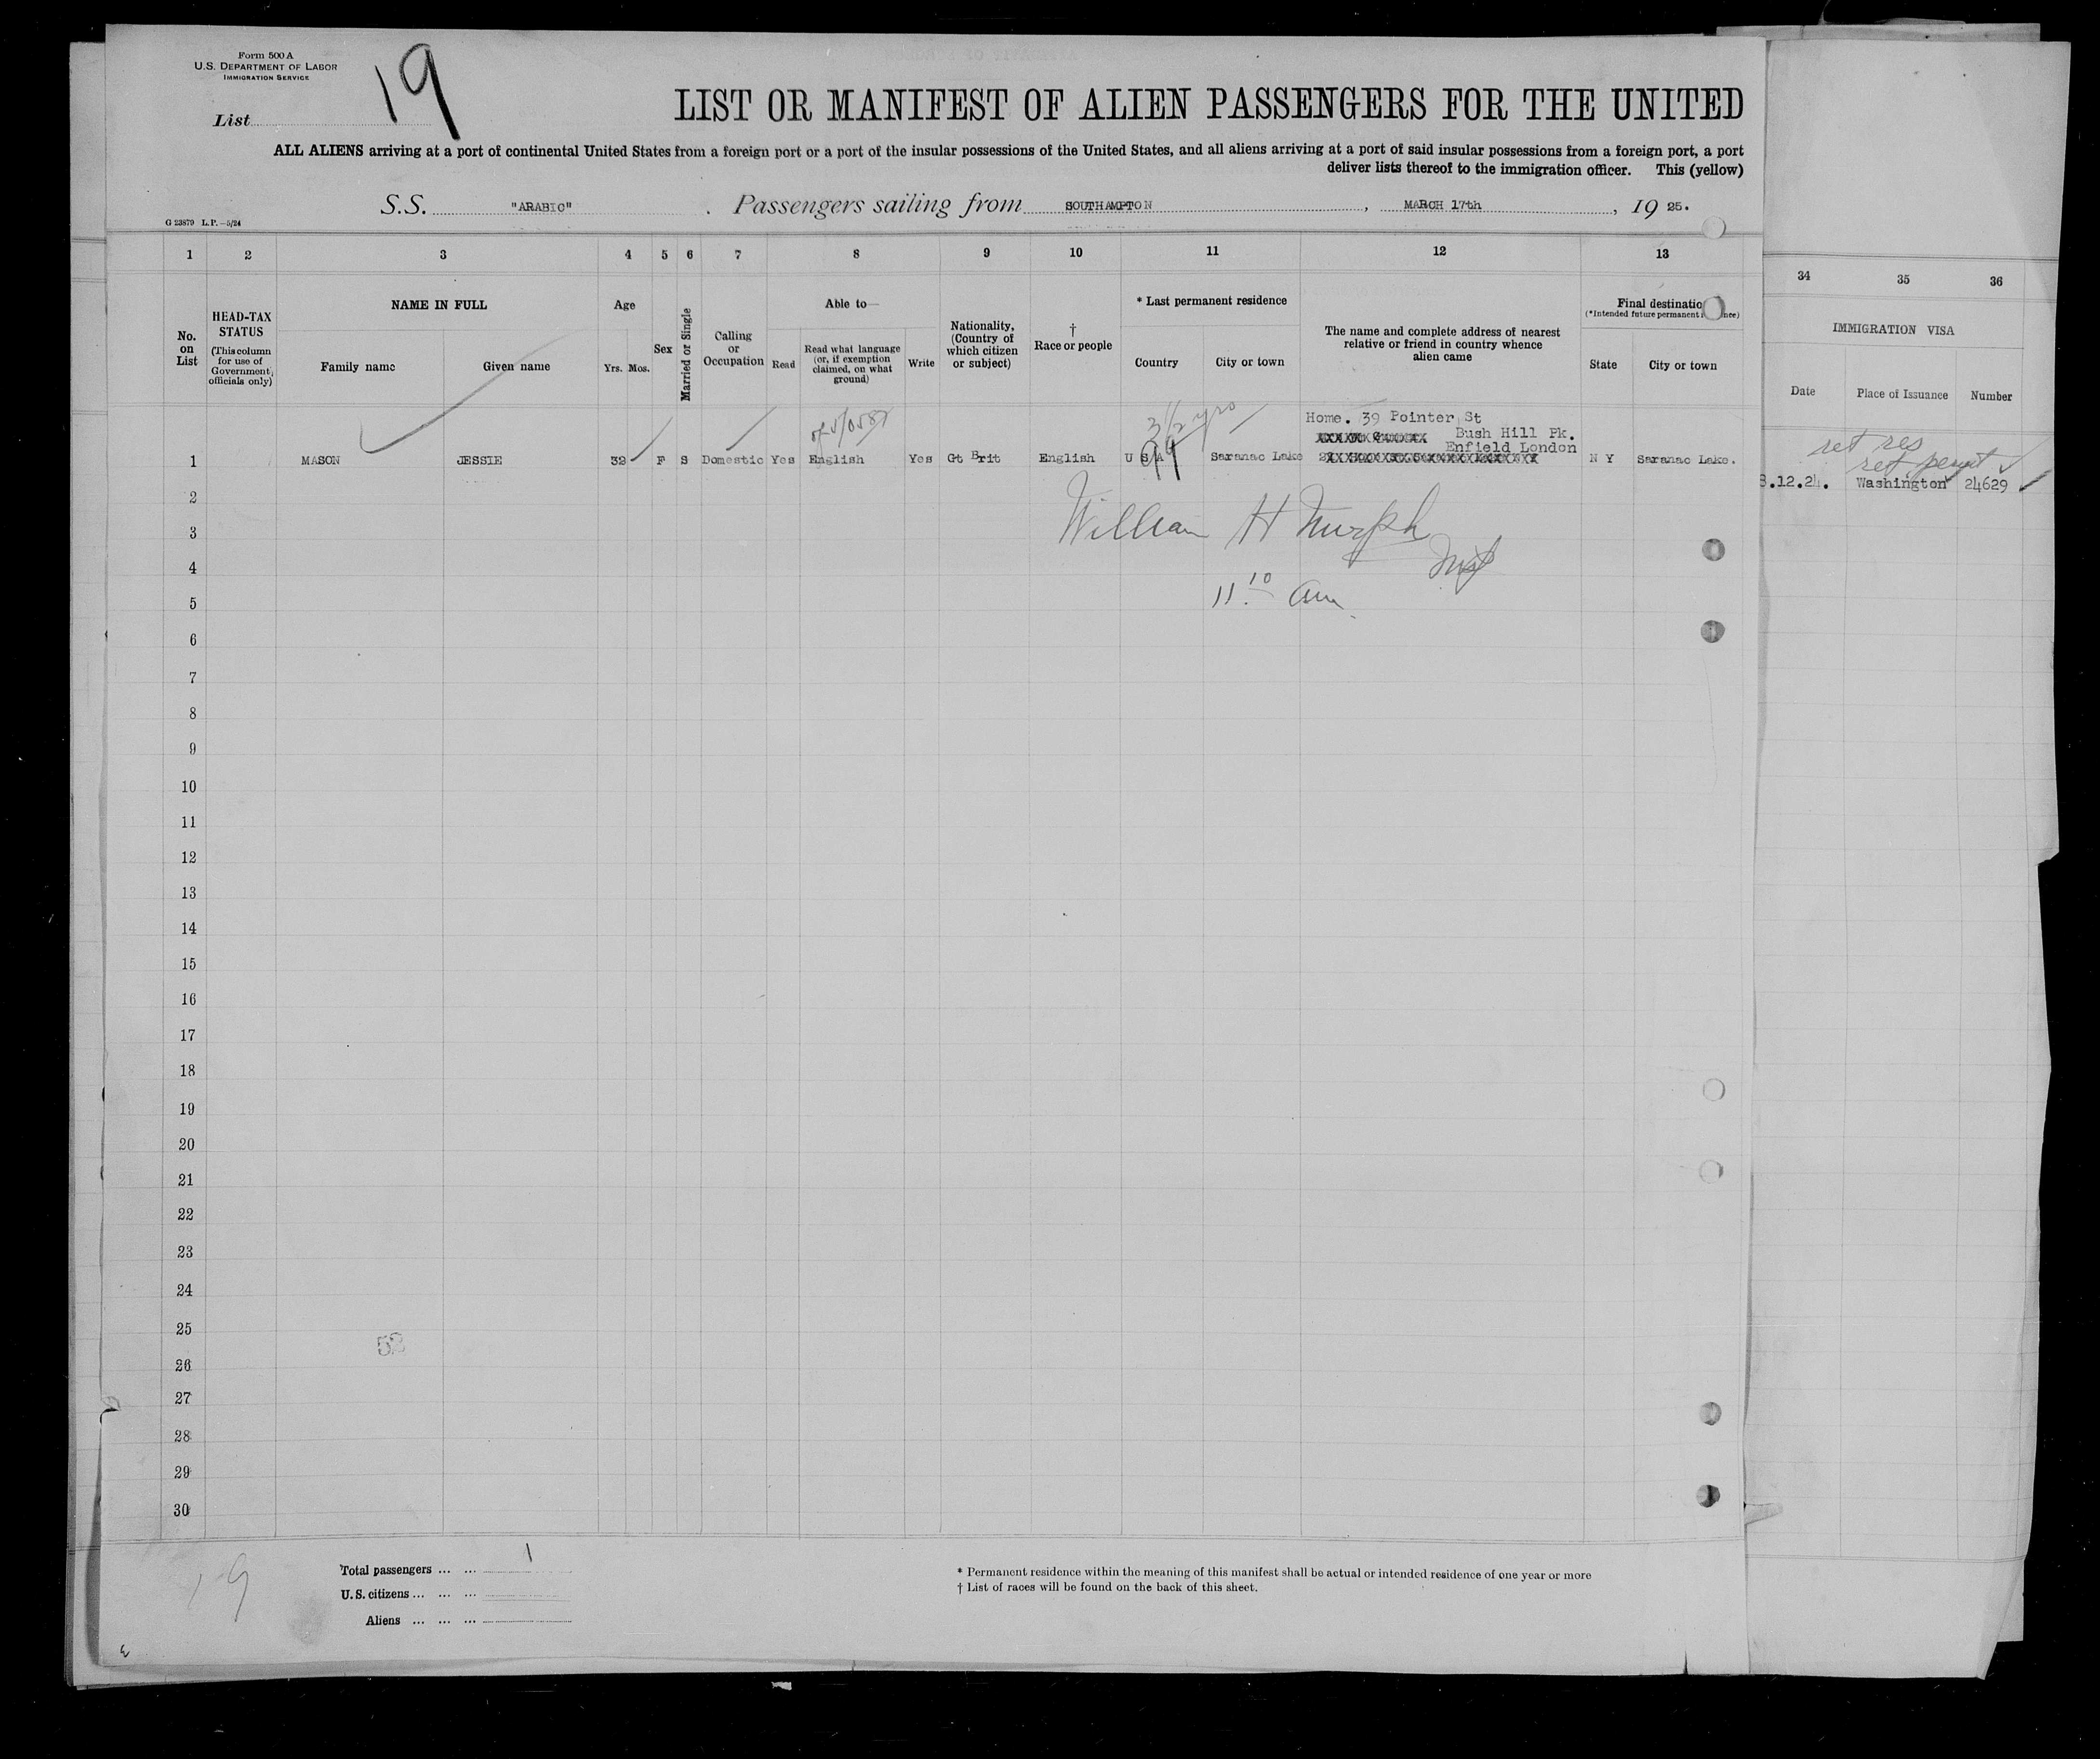 Form 500 A
U.S. DEPARTMENT OF LABOR
IMMIGRATION SERVICE
List 19
LIST OR MANIFEST OF ALIEN PASSENGERS FOR THE UNITED
ALL ALIENS arriving at a port of continental United States from a foreign port or a port of the insular possessions of the United States, and all aliens arriving at a port of said insular possessions from a foreign port, a port
deliver lists thereof to the immigration officer. This (yellow)
S.S. "ARABIC" . Passengers sailing from SOUTHAMPTON , MARCH 17th , 19 25.
G 23879 L.P.—5/24
1 2 3 4 5 6 7 8 9 10 11 12 13
34 35 36
No. on List
HEAD-TAX STATUS
(This column for use of Government officials only)
NAME IN FULL
Family name
Given name
Age
Yrs. Mos.
Sex
Married or Single
Calling or Occupation
Able to—
Read
Read what language (or, if exemption claimed, on what ground)
Write
Nationality, (Country of which citizen or subject)
†
Race or people
* Last permanent residence
Country
City or town
The name and complete address of nearest relative or friend in country whence alien came
Final destination
(*Intended future permanent
State
City or town
IMMIGRATION VISA
Date
Place of Issuance
Number
3 1/2 yrs
Home. 39 Pointer St
Bush Hill Pk.
Enfield London
1 MASON JESSIE 32 F S Domestic Yes English Yes Gt Brit English U S A Saranac Lake N Y Saranac Lake.
99
ret res
ret permit
8.12.24. Washington 24629
William H Murph
Insp
11.10 am
2
3
4
5
6
7
8
9
10
11
12
13
14
15
16
17
18
19
20
21
22
23
24
25
26
27
28
29
30
Total passengers ... ... 1
U.S. citizens ... ... ...
Aliens ... ... ...
19
* Permanent residence within the meaning of this manifest shall be actual or intended residence of one year or more
† List of races will be found on the back of this sheet.